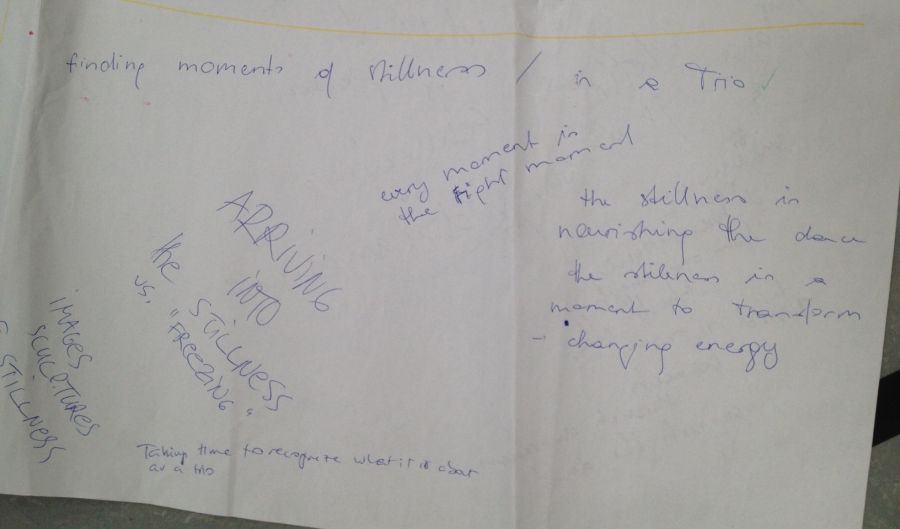 finding moments of stillness / in a Trio ✓
every moment is
the right moment
ARRIVING
INTO
the STILLNESS
vs. "FREEZING"
IMAGES
SCULPTURES
STILLNESS
the stillness is
nourishing the dance
the stillness is a
moment to transform
- changing energy
Taking time to recognize what it is about
as a trio